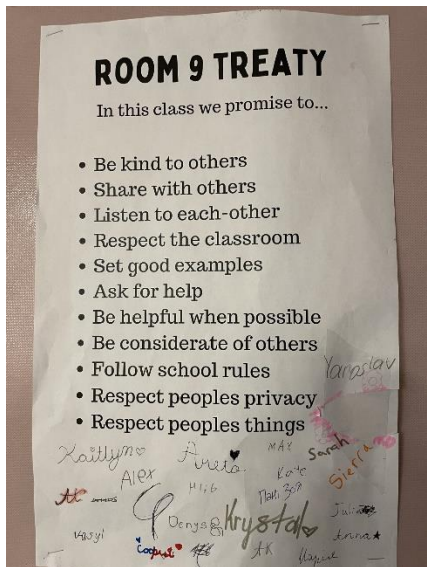 ROOM 9 TREATY
In this class we promise to...
• Be kind to others
• Share with others
• Listen to each-other
• Respect the classroom
• Set good examples
• Ask for help
• Be helpful when possible
• Be considerate of others
• Follow school rules
• Respect peoples privacy
• Respect peoples things
Yaroslav
Kaitlyn
MAX
Sarah
Alex
Kate
Sierra
Hlib
Denys
Krystal
Vasyl
Anna
AK